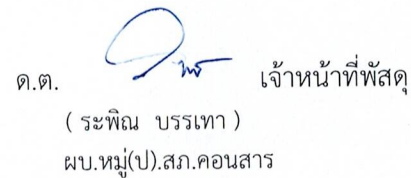 ด.ต. เจ้าหน้าที่พัสดุ
( ระพิณ บรรเทา )
ผบ.หมู่(ป).สภ.คอนสาร